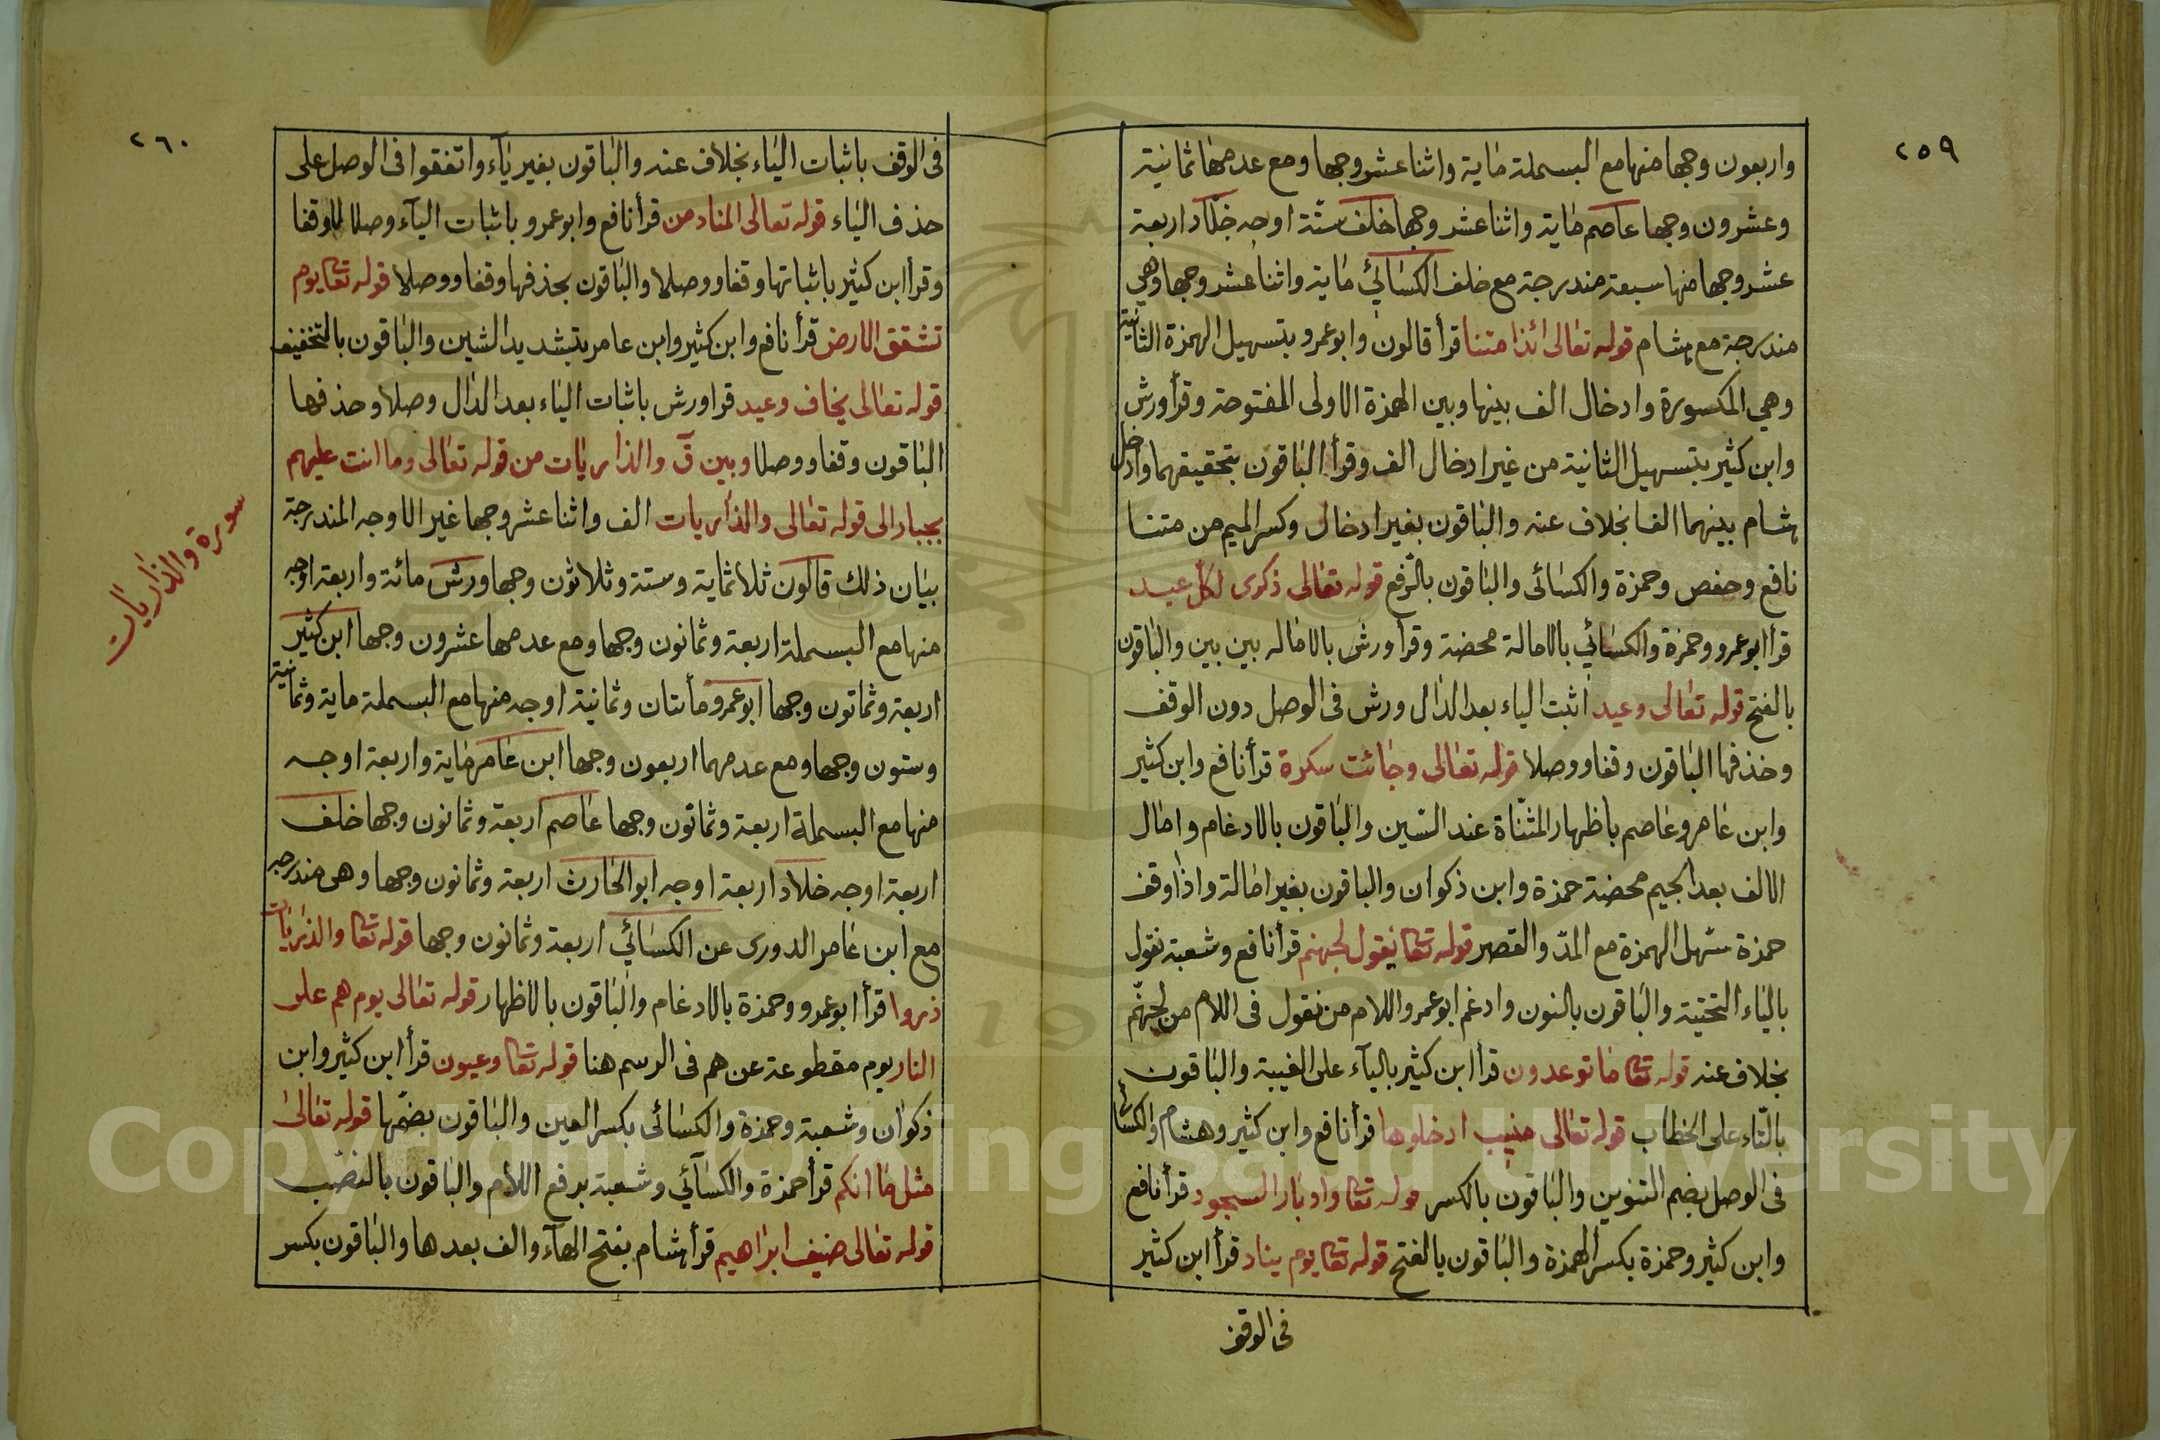 ٢٥٩
واربعون وجها منها مع البسملة ماية واثنا عشر وجها ومع عدمها ثمانية
وعشرون وجها عاصم ماية واثنا عشر وجها خلف ستة اوجه خلاد اربعة
عشر وجها منها سبعة مندرجة مع خلف الكسائي ماية واثنا عشر وجها وهي
مندرجة مع هشام قوله تعالى ائذا متنا قرأ قالون وابو عمرو بتسهيل الهمزة الثانية
وهي المكسورة وادخال الف بينها وبين الهمزة الاولى المفتوحة وقرأ ورش
وابن كثير بتسهيل الثانية من غير ادخال الف وقرأ الباقون بتحقيقهما وادخل
هشام بينهما الفا بخلاف عنه والباقون بغير ادخال وكسر الميم من متنا
نافع وحفص وحمزة والكسائى والباقون بالرفع قوله تعالى ذكرى لكل عبد
قرأ ابو عمرو وحمزة والكسائي بالامالة محضة وقرأ ورش بالاماله بين بين والباقون
بالفتح قوله تعالى وعيد اثبت الياء بعد الدال ورش فى الوصل دون الوقف
وحذفها الباقون وقفا ووصلا قوله تعالى وجائت سكرة قرأ نافع وابن كثير
وابن عامر وعاصم باظهار المثناة عند السين والباقون بالادغام وامال
الالف بعد الجيم محضة حمزة وابن ذكوان والباقون بغير امالة واذا وقف
حمزة سهل الهمزة مع المد والقصر قوله تعا نقول لجهنم قرأ نافع وشعبة نقول
بالياء التحتية والباقون بالنون وادغم ابو عمرو اللام من نقول فى اللام من لجهنم
بخلاف عنه قوله تعا ما توعدون قرأ ابن كثير بالياء على الغيبة والباقون
بالتاء على الخطاب قوله تعالى منيب ادخلوها قرأ نافع وابن كثير وهشام والكسائى
فى الوصل بضم التنوين والباقون بالكسر قوله تعا وادبار السجود قرأ نافع
وابن كثير وحمزة بكسر الهمزة والباقون بالفتح قوله تعا يوم يناد قرأ ابن كثير
فى الوقف
٢٦٠
فى الوقف باثبات الياء بخلاف عنه والباقون بغير ياء واتفقوا فى الوصل على
حذف الياء قوله تعالى المناد من قرأ نافع وابو عمرو باثبات الياء وصلا لا وقفا
وقرأ ابن كثير باثباتها وقفا ووصلا والباقون بحذفها وقفا ووصلا قوله تعا يوم
تشقق الارض قرأ نافع وابن كثير وابن عامر بتشديد الشين والباقون بالتخفيف
قوله تعالى يخاف وعيد قرا ورش باثبات الياء بعد الدال وصلا وحذفها
الباقون وقفا ووصلا وبين ق والذاريات من قوله تعالى وما انت عليهم
بجبار الى قوله تعالى والذاريات الف واثنا عشر وجها غير الاوجه المندرجة
بيان ذلك قالون ثلاثماية وستة وثلاثون وجها ورش مائة واربعة اوجه
منها مع البسملة اربعة وثمانون وجها ومع عدمها عشرون وجها ابن كثير
اربعة وثمانون وجها ابو عمرو مأتان وثمانية اوجه منها مع البسملة ماية وثمانية
وستون وجها ومع عدمهما اربعون وجها ابن عامر ماية واربعة اوجه
منها مع البسملة اربعة وثمانون وجها عاصم اربعة وثمانون وجها خلف
اربعة اوجه خلاد اربعة اوجه ابو الحارث اربعة وثمانون وجها وهى مندرجه
مع ابن عامر الدورى عن الكسائي اربعة وثمانون وجها قوله تعا والذاريات
ذروا قرأ ابو عمرو وحمزة بالادغام والباقون بالاظهار قوله تعالى يوم هم على
النار يوم مقطوعة عن هم فى الرسم هنا قوله تعا وعيون قرأ ابن كثير وابن
ذكوان وشعبة وحمزة والكسائى بكسر العين والباقون بضمها قوله تعالى
مثل ما انكم قرأ حمزة والكسائي وشعبة برفع اللام والباقون بالنصب
قوله تعالى ضيف ابراهيم قرأ هشام بفتح الهاء والف بعدها والباقون بكسر
سورة والذاريات
Copyright © King Saud University